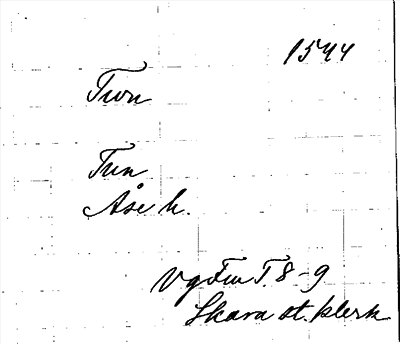 1544
Twn
Tun
Åse h.
Vg Fm T. 8-9
Skara st. klerk